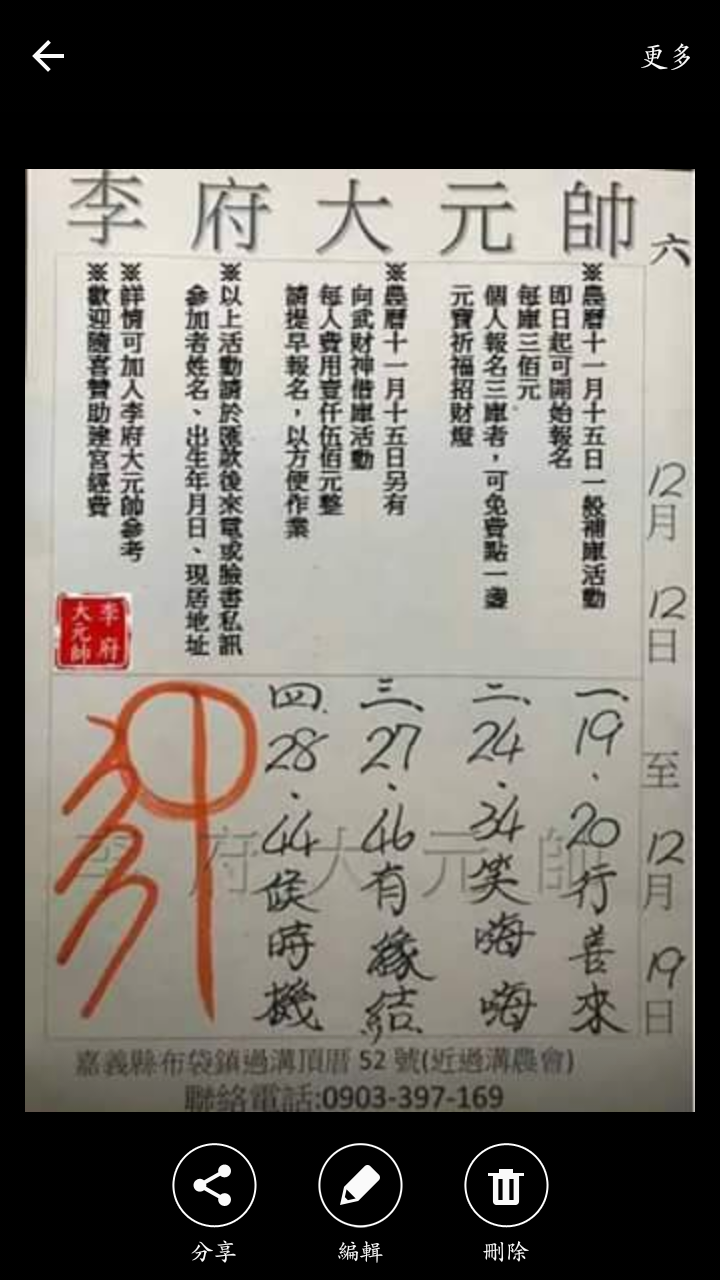 更多
李府大元帥
六
12月12日至12月19日
※農曆十一月十五日一般補庫活動
即日起可開始報名
每庫三佰元
個人報名三庫者，可免費點一盞
元寶祈福招財燈
※農曆十一月十五日另有
向武財神借庫活動
每人費用壹仟伍佰元整
請提早報名，以方便作業
※以上活動請於匯款後來電或臉書私訊
參加者姓名、出生年月日、現居地址
※詳情可加入李府大元帥參考
※歡迎隨喜贊助建宮經費
李府
大元帥
一、19.20行善來
二、24.34笑嗨嗨
三、27.46有緣結
四、28.44候時機
李府大元帥
嘉義縣布袋鎮過溝頂厝 52 號(近過溝農會)
聯絡電話:0903-397-169
分享
編輯
刪除